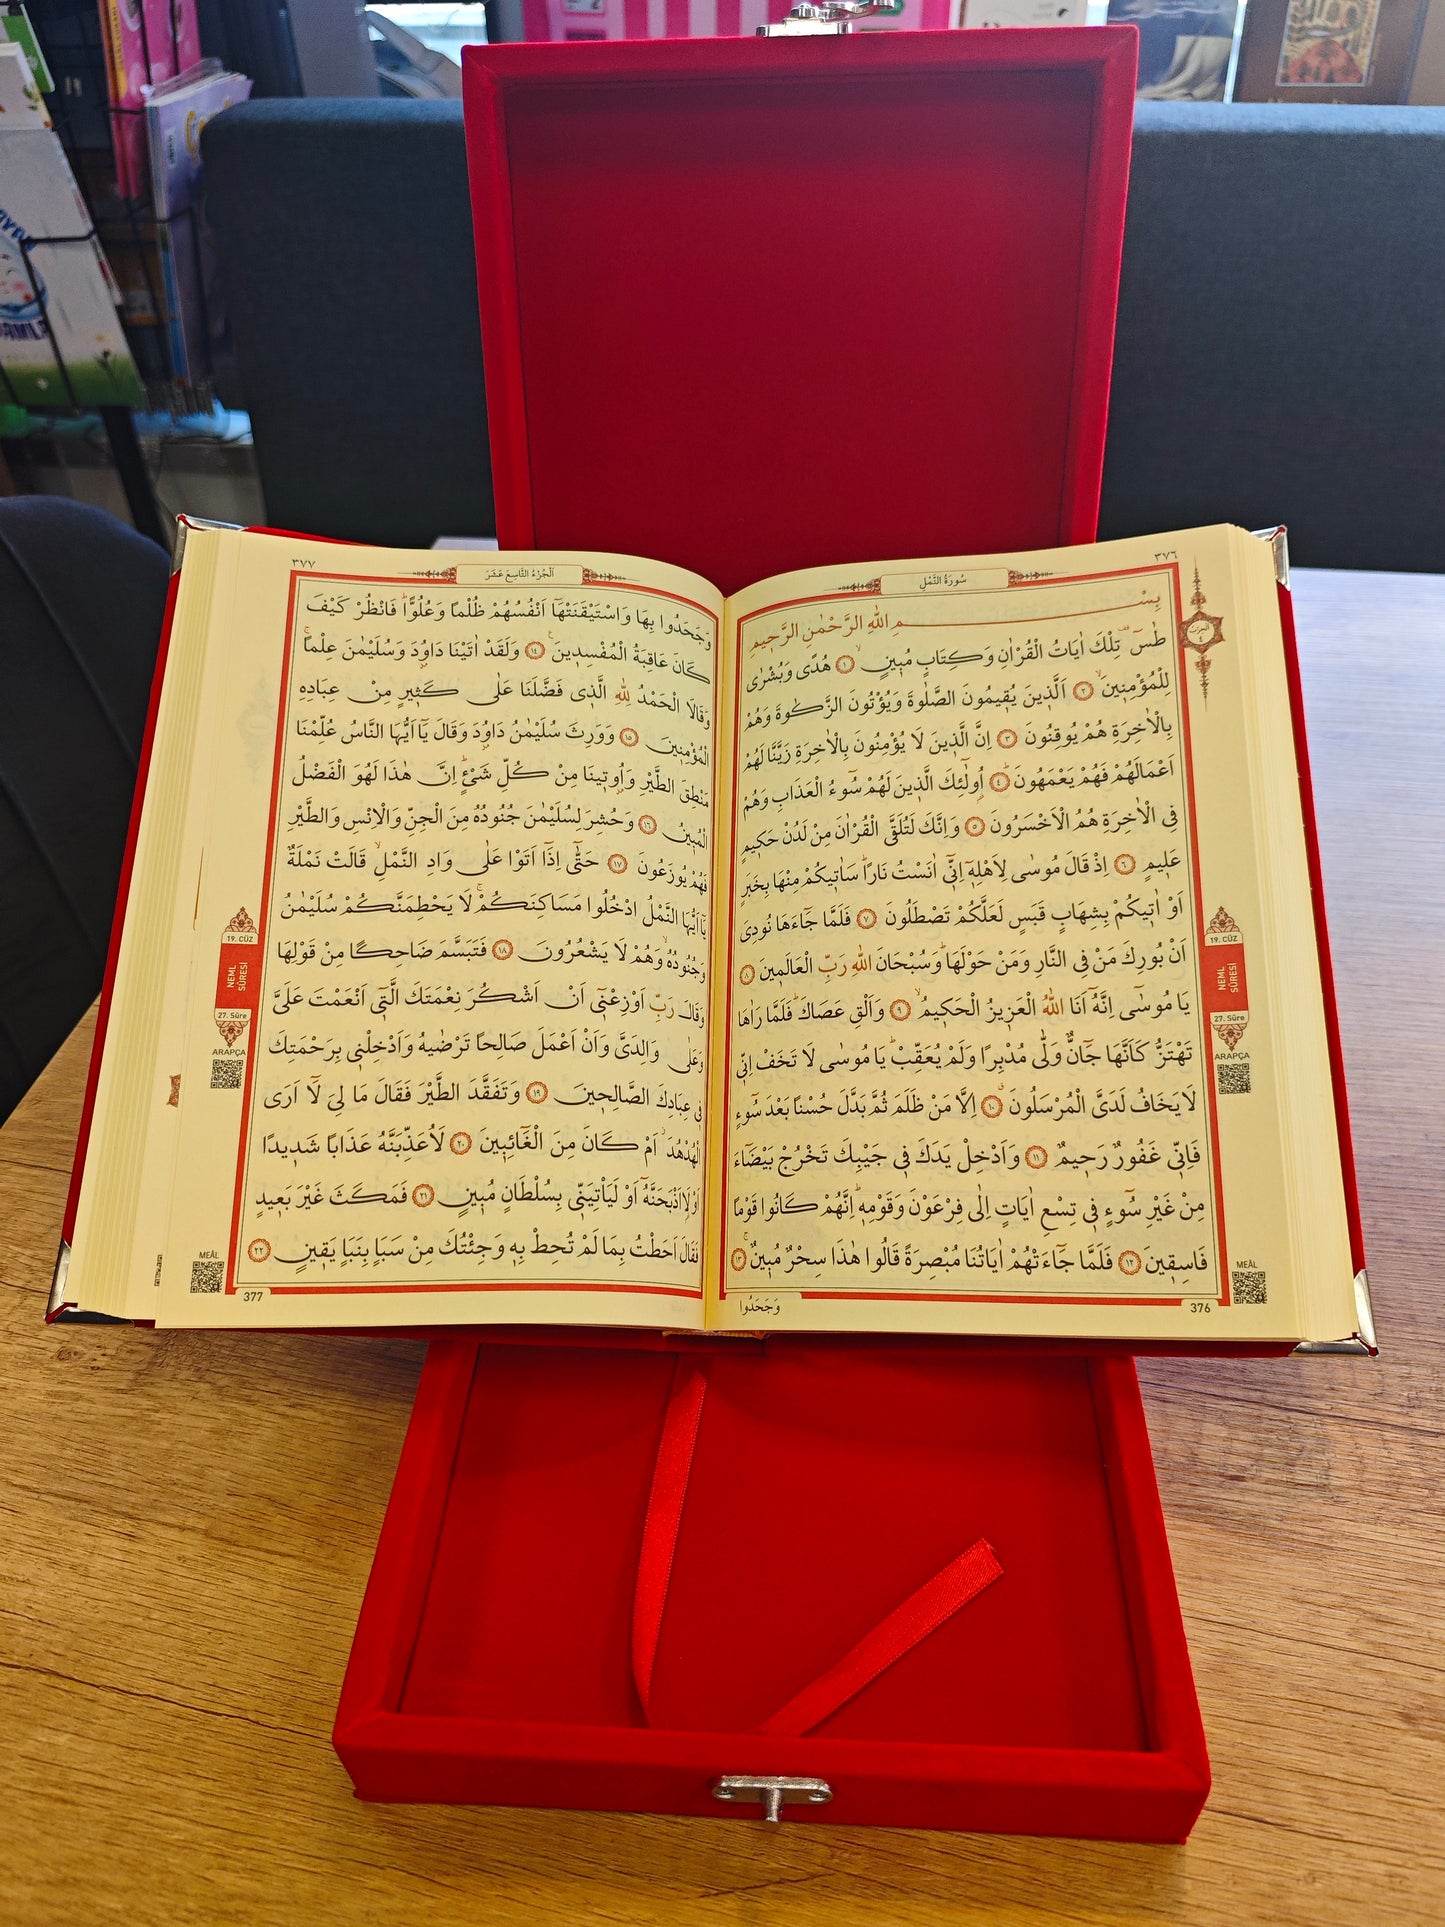 ٣٧٦
سُورَةُ النَّمْلِ
بِسْمِ اللّٰهِ الرَّحْمٰنِ الرَّحٖيمِ
طٰسٓ تِلْكَ اٰيَاتُ الْقُرْاٰنِ وَكِتَابٍ مُبٖينٍۙ ﴿١﴾ هُدًى وَبُشْرٰى
لِلْمُؤْمِنٖينَۙ ﴿٢﴾ اَلَّذٖينَ يُقٖيمُونَ الصَّلٰوةَ وَيُؤْتُونَ الزَّكٰوةَ وَهُمْ
بِالْاٰخِرَةِ هُمْ يُوقِنُونَ ﴿٣﴾ اِنَّ الَّذٖينَ لَا يُؤْمِنُونَ بِالْاٰخِرَةِ زَيَّنَّا لَهُمْ
اَعْمَالَهُمْ فَهُمْ يَعْمَهُونَؕ ﴿٤﴾ اُو۬لٰٓئِكَ الَّذٖينَ لَهُمْ سُٓوءُ الْعَذَابِ وَهُمْ
فِي الْاٰخِرَةِ هُمُ الْاَخْسَرُونَ ﴿٥﴾ وَاِنَّكَ لَتُلَقَّى الْقُرْاٰنَ مِنْ لَدُنْ حَكٖيمٍ
عَلٖيمٍ ﴿٦﴾ اِذْ قَالَ مُوسٰى لِاَهْلِهٖٓ اِنّٖٓي اٰنَسْتُ نَارًاؕ سَاٰتٖيكُمْ مِنْهَا بِخَبَرٍ
اَوْ اٰتٖيكُمْ بِشِهَابٍ قَبَسٍ لَعَلَّكُمْ تَصْطَلُونَ ﴿٧﴾ فَلَمَّا جَٓاءَهَا نُودِيَ
اَنْ بُورِكَ مَنْ فِي النَّارِ وَمَنْ حَوْلَهَاؕ وَسُبْحَانَ اللّٰهِ رَبِّ الْعَالَمٖينَ ﴿٨﴾
يَا مُوسٰٓى اِنَّهُٓ اَنَا اللّٰهُ الْعَزٖيزُ الْحَكٖيمُۙ ﴿٩﴾ وَاَلْقِ عَصَاكَؕ فَلَمَّا رَاٰهَا
تَهْتَزُّ كَاَنَّهَا جَٓانٌّ وَلّٰى مُدْبِرًا وَلَمْ يُعَقِّبْؕ يَا مُوسٰى لَا تَخَفْ اِنّٖي
لَا يَخَافُ لَدَيَّ الْمُرْسَلُونَۗ ﴿١٠﴾ اِلَّا مَنْ ظَلَمَ ثُمَّ بَدَّلَ حُسْنًا بَعْدَ سُٓوءٍ
فَاِنّٖي غَفُورٌ رَحٖيمٌ ﴿١١﴾ وَاَدْخِلْ يَدَكَ فٖي جَيْبِكَ تَخْرُجْ بَيْضَٓاءَ
مِنْ غَيْرِ سُٓوءٍ فٖي تِسْعِ اٰيَاتٍ اِلٰى فِرْعَوْنَ وَقَوْمِهٖؕ اِنَّهُمْ كَانُوا قَوْمًا
فَاسِقٖينَ ﴿١٢﴾ فَلَمَّا جَٓاءَتْهُمْ اٰيَاتُنَا مُبْصِرَةً قَالُوا هٰذَا سِحْرٌ مُبٖينٌۚ ﴿١٣﴾
وَجَحَدُوا
376
19. CÜZ
NEML
SÛRESİ
27. Sûre
ARAPÇA
MEÂL
٣٧٧
اَلْجُزْءُ التَّاسِعَ عَشَرَ
وَجَحَدُوا بِهَا وَاسْتَيْقَنَتْهَٓا اَنْفُسُهُمْ ظُلْمًا وَعُلُوًّاؕ فَانْظُرْ كَيْفَ
كَانَ عَاقِبَةُ الْمُفْسِدٖينَۚ ﴿١٤﴾ وَلَقَدْ اٰتَيْنَا دَاوُ۫دَ وَسُلَيْمٰنَ عِلْمًاۚ
وَقَالَا الْحَمْدُ لِلّٰهِ الَّذٖي فَضَّلَنَا عَلٰى كَثٖيرٍ مِنْ عِبَادِهِ
الْمُؤْمِنٖينَ ﴿١٥﴾ وَوَرِثَ سُلَيْمٰنُ دَاوُ۫دَ وَقَالَ يَٓا اَيُّهَا النَّاسُ عُلِّمْنَا
مَنْطِقَ الطَّيْرِ وَاُو۫تٖينَا مِنْ كُلِّ شَيْءٍؕ اِنَّ هٰذَا لَهُوَ الْفَضْلُ
الْمُبٖينُ ﴿١٦﴾ وَحُشِرَ لِسُلَيْمٰنَ جُنُودُهُ مِنَ الْجِنِّ وَالْاِنْسِ وَالطَّيْرِ
فَهُمْ يُوزَعُونَ ﴿١٧﴾ حَتّٰٓى اِذَٓا اَتَوْا عَلٰى وَادِ النَّمْلِۙ قَالَتْ نَمْلَةٌ
يَٓا اَيُّهَا النَّمْلُ ادْخُلُوا مَسَاكِنَكُمْۚ لَا يَحْطِمَنَّكُمْ سُلَيْمٰنُ
وَجُنُودُهُۙ وَهُمْ لَا يَشْعُرُونَ ﴿١٨﴾ فَتَبَسَّمَ ضَاحِكًا مِنْ قَوْلِهَا
وَقَالَ رَبِّ اَوْزِعْنٖٓي اَنْ اَشْكُرَ نِعْمَتَكَ الَّتٖٓي اَنْعَمْتَ عَلَيَّ
وَعَلٰى وَالِدَيَّ وَاَنْ اَعْمَلَ صَالِحًا تَرْضٰيهُ وَاَدْخِلْنٖي بِرَحْمَتِكَ
فٖي عِبَادِكَ الصَّالِحٖينَ ﴿١٩﴾ وَتَفَقَّدَ الطَّيْرَ فَقَالَ مَا لِيَ لَٓا اَرَى
الْهُدْهُدَؗ اَمْ كَانَ مِنَ الْغَٓائِبٖينَ ﴿٢٠﴾ لَاُعَذِّبَنَّهُ عَذَابًا شَدٖيدًا
اَوْ لَاَا۬ذْبَحَنَّهُٓ اَوْ لَيَأْتِيَنّٖي بِسُلْطَانٍ مُبٖينٍ ﴿٢١﴾ فَمَكَثَ غَيْرَ بَعٖيدٍ
فَقَالَ اَحَطْتُ بِمَا لَمْ تُحِطْ بِهٖ وَجِئْتُكَ مِنْ سَبَأٍ بِنَبَأٍ يَقٖينٍ ﴿٢٢﴾
377
19. CÜZ
NEML
SÛRESİ
27. Sûre
ARAPÇA
MEÂL